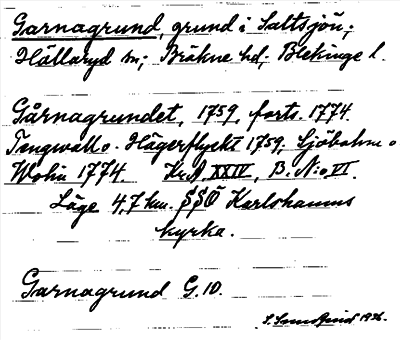 Garnagrund, grund i Saltsjön;
Hällaryd sn; Bräkne hd; Blekinge l.
Gårnagrundet, 1759, forts. 1774.
Tengwall o. Hägerflycht 1759, Sjöbohm o
Wohn 1774. Kr.A. XXIV, B. N:o VI.
Läge 4,7 km. SSÖ Karlshamns
kyrka.
Garnagrund G.10.
1936.